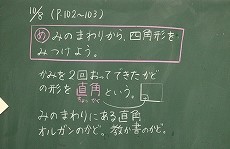 10/8 (P.102~103)
め みのまわりから、四角形を
みつけよう。
かみを2回おってできたかど
の形を直角という。
ちょっかく
みのまわりにある直角
オルガンのかど。教か書のかど。